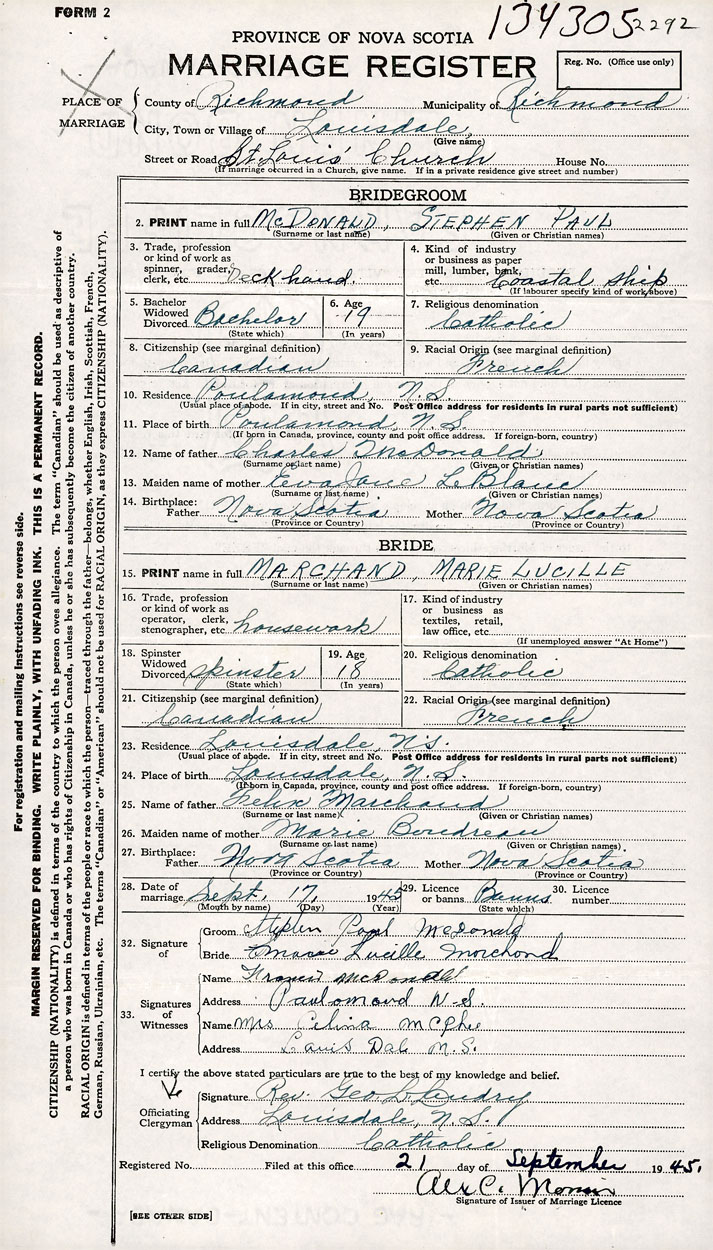 FORM 2
134305 2292
PROVINCE OF NOVA SCOTIA
MARRIAGE REGISTER
Reg. No. (Office use only)
PLACE OF MARRIAGE
County of Richmond Municipality of Richmond
City, Town or Village of Louisdale,
(Give name)
Street or Road St. Louis' Church House No.
(If marriage occurred in a Church, give name. If in a private residence give street and number)
BRIDEGROOM
2. PRINT name in full McDONALD, STEPHEN PAUL
(Surname or last name) (Given or Christian names)
3. Trade, profession or kind of work as spinner, grader, clerk, etc. Deck hand.
4. Kind of industry or business as paper mill, lumber, bank, etc. Coastal ship
(If labourer specify kind of work above)
5. Bachelor Widowed Divorced Bachelor
(State which)
6. Age 19
(In years)
7. Religious denomination Catholic
8. Citizenship (see marginal definition) Canadian
9. Racial Origin (see marginal definition) French
10. Residence Poulamond, N.S.
(Usual place of abode. If in city, street and No. Post Office address for residents in rural parts not sufficient)
11. Place of birth Poulamond, N.S.
(If born in Canada, province, county and post office address. If foreign-born, country)
12. Name of father Charles McDonald
(Surname or last name) (Given or Christian names)
13. Maiden name of mother Eva Jane LeBlanc
(Surname or last name) (Given or Christian names)
14. Birthplace: Father Nova Scotia Mother Nova Scotia
(Province or Country) (Province or Country)
BRIDE
15. PRINT name in full MARCHAND, MARIE LUCILLE
(Surname or last name) (Given or Christian names)
16. Trade, profession or kind of work as operator, clerk, stenographer, etc. housework
17. Kind of industry or business as textiles, retail, law office, etc.
(If unemployed answer "At Home")
18. Spinster Widowed Divorced spinster
(State which)
19. Age 18
(In years)
20. Religious denomination Catholic
21. Citizenship (see marginal definition) Canadian
22. Racial Origin (see marginal definition) French
23. Residence Louisdale, N.S.
(Usual place of abode. If in city, street and No. Post Office address for residents in rural parts not sufficient)
24. Place of birth Louisdale, N.S.
(If born in Canada, province, county and post office address. If foreign-born, country)
25. Name of father Felix Marchand
(Surname or last name) (Given or Christian names)
26. Maiden name of mother Marie Boudreau
(Surname or last name) (Given or Christian names)
27. Birthplace: Father Nova Scotia Mother Nova Scotia
(Province or Country) (Province or Country)
28. Date of marriage Sept. 17, 1945
(Month by name) (Day) (Year)
29. Licence or banns Banns
(State which)
30. Licence number
32. Signature of
Groom Stephen Paul McDonald
Bride Marie Lucille Marchand
33. Signatures of Witnesses
Name Francis McDonald
Address Paulomond N.S.
Name Mrs Celina McPhee
Address Louis Dale N.S.
I certify the above stated particulars are true to the best of my knowledge and belief.
Officiating Clergyman
Signature Rev. Geo L Landry
Address Louisdale, N.S.
Religious Denomination Catholic
Registered No. Filed at this office 21 day of September 1945.
Alex C.
Signature of Issuer of Marriage Licence
[SEE OTHER SIDE]
For registration and mailing instructions see reverse side.
MARGIN RESERVED FOR BINDING. WRITE PLAINLY, WITH UNFADING INK. THIS IS A PERMANENT RECORD.
CITIZENSHIP (NATIONALITY) is defined in terms of the country to which the person owes allegiance. The term "Canadian" should be used as descriptive of
a person who was born in Canada or who has rights of Citizenship in Canada, unless he or she has subsequently become the citizen of another country.
RACIAL ORIGIN is defined in terms of the people or race to which the person—traced through the father—belongs, whether English, Irish, Scottish, French,
German, Russian, Ukrainian, etc. The terms "Canadian" or "American" should not be used for RACIAL ORIGIN, as they express CITIZENSHIP (NATIONALITY).